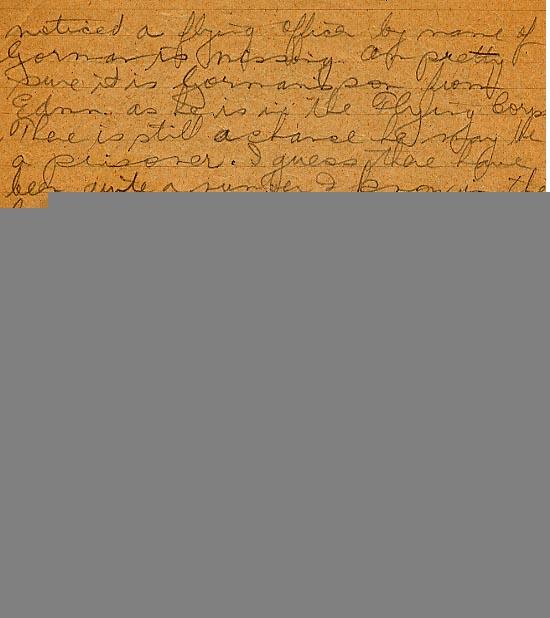 noticed a flying officer by name of
Gorman is missing. Am pretty
sure it is Gorman's son from
Edmn. as he is in the Flying Corps
There is still a chance he may be
a prisoner. I guess there have
been quite a number I know in the